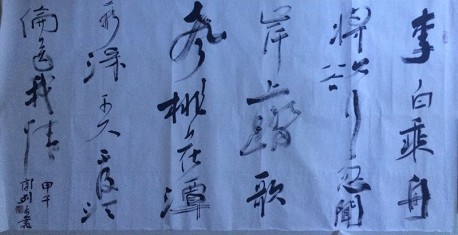 李白乘舟
將欲行忽聞
岸上踏歌
声桃花潭
水深千尺不及汪
倫送我情
甲午